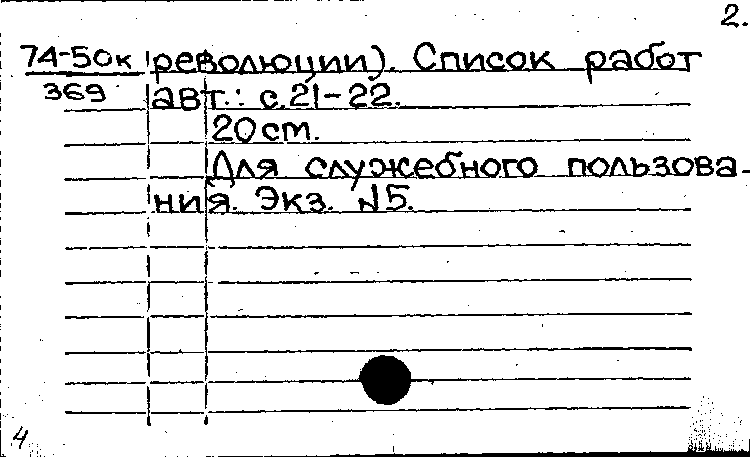 2.
74-50к революции). Список работ
369 авт.: с.21-22.
20см.
Для служебного пользова-
ния. Экз. №5.
4